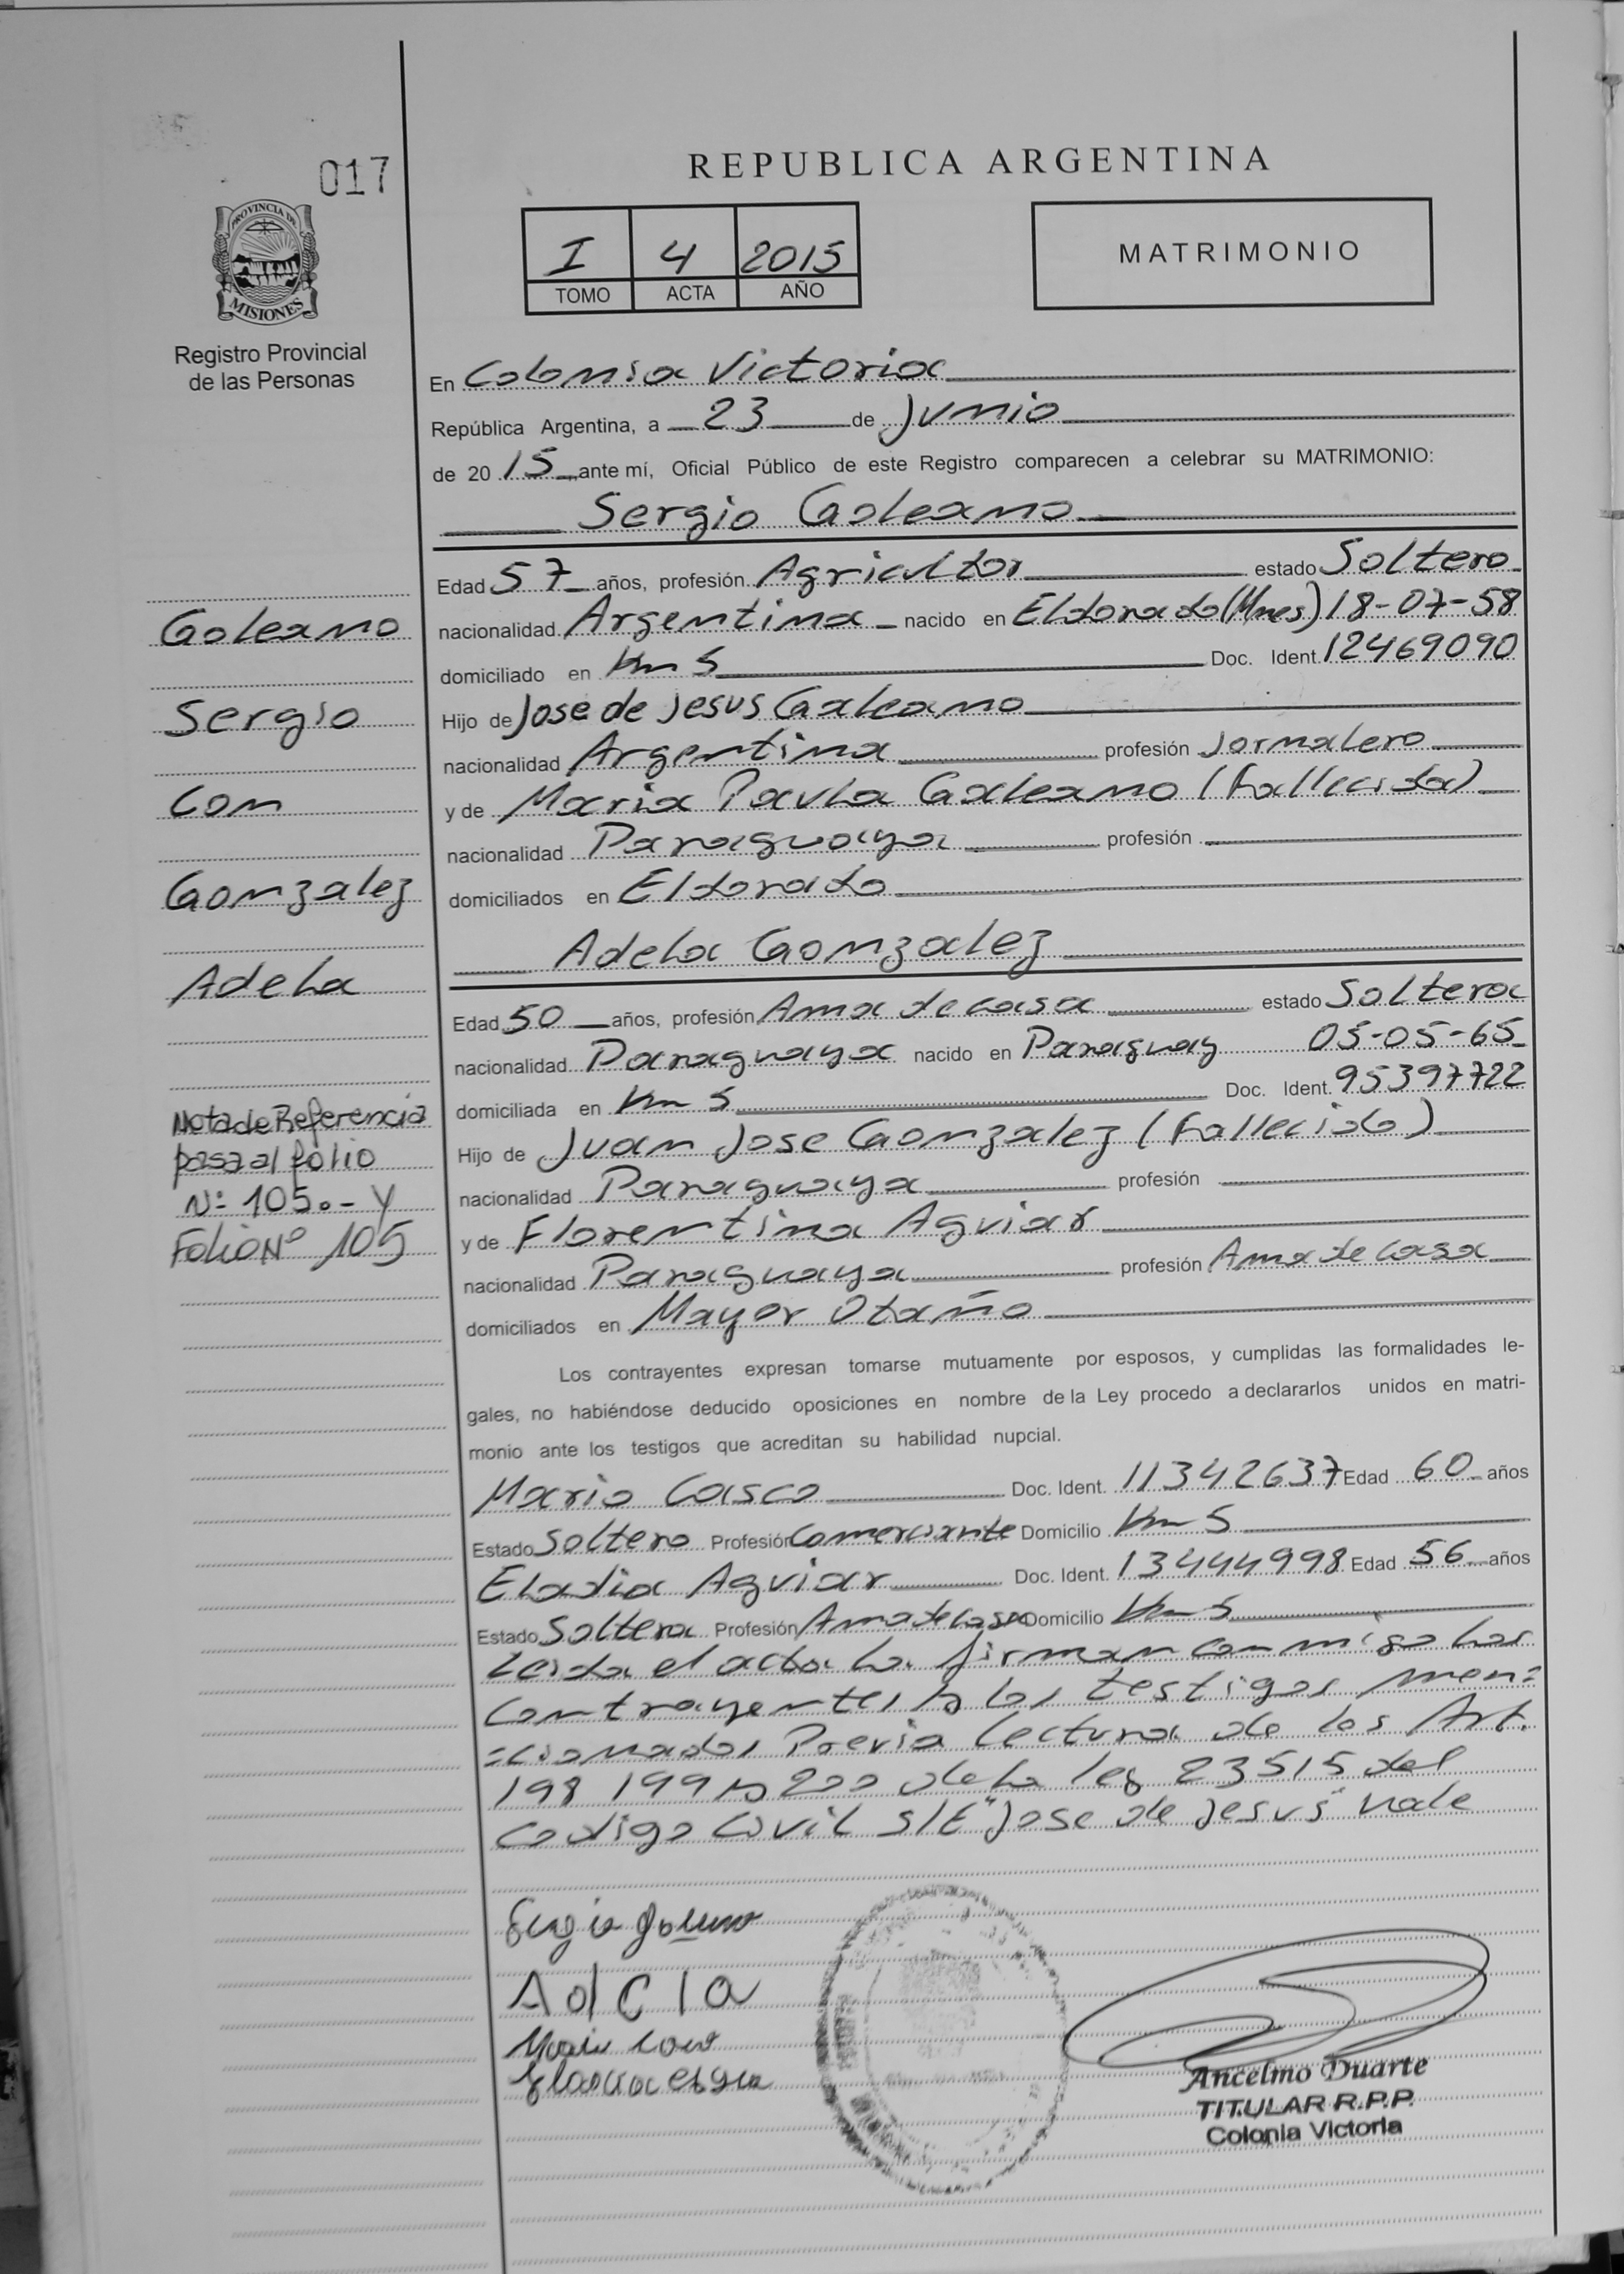 017
REPUBLICA ARGENTINA
PROVINCIA DE
MISIONES
Registro Provincial
de las Personas
I 4 2015
TOMO ACTA AÑO
MATRIMONIO
En Colonia Victoria
República Argentina, a 23 de Junio
de 20 15 ante mí, Oficial Público de este Registro comparecen a celebrar su MATRIMONIO:
Sergio Galeano
Edad 57 años, profesión Agricultor estado Soltero
nacionalidad Argentina nacido en Eldorado (Mnes) 18-07-58
domiciliado en Km 5 Doc. Ident. 12469090
Hijo de Jose de Jesus Galeano
nacionalidad Argentina profesión Jornalero
y de Maria Paula Galeano (Fallecida)
nacionalidad Paraguaya profesión
domiciliados en Eldorado
Adela Gonzalez
Edad 50 años, profesión Ama de casa estado Soltera
nacionalidad Paraguaya nacido en Paraguay 05-05-65
domiciliada en Km 5 Doc. Ident. 95397722
Hijo de Juan Jose Gonzalez (Fallecido)
nacionalidad Paraguaya profesión
y de Florentina Aguiar
nacionalidad Paraguaya profesión Ama de casa
domiciliados en Mayor Otaño
Los contrayentes expresan tomarse mutuamente por esposos, y cumplidas las formalidades le-
gales, no habiéndose deducido oposiciones en nombre de la Ley procedo a declararlos unidos en matri-
monio ante los testigos que acreditan su habilidad nupcial.
Mario Casco Doc. Ident. 11342637 Edad 60 años
Estado Soltero Profesión Comerciante Domicilio Km 5
Eladia Aguiar Doc. Ident. 13444998 Edad 56 años
Estado Soltera Profesión Ama de casa Domicilio Km 5
Leida el acta la firman conmigo los
contrayentes y los testigos men=
=cionados Previa lectura de los Art.
198 199 y 200 de la ley 23515 del
codigo Civil S/E "Jose de Jesus" vale
Galeano
Sergio
con
Gonzalez
Adela
Nota de Referencia
pasa al folio
Nº 105.- y
Folio Nº 105
Sergio Galeano
Adela
Ancelmo Duarte
TITULAR R.P.P.
Colonia Victoria